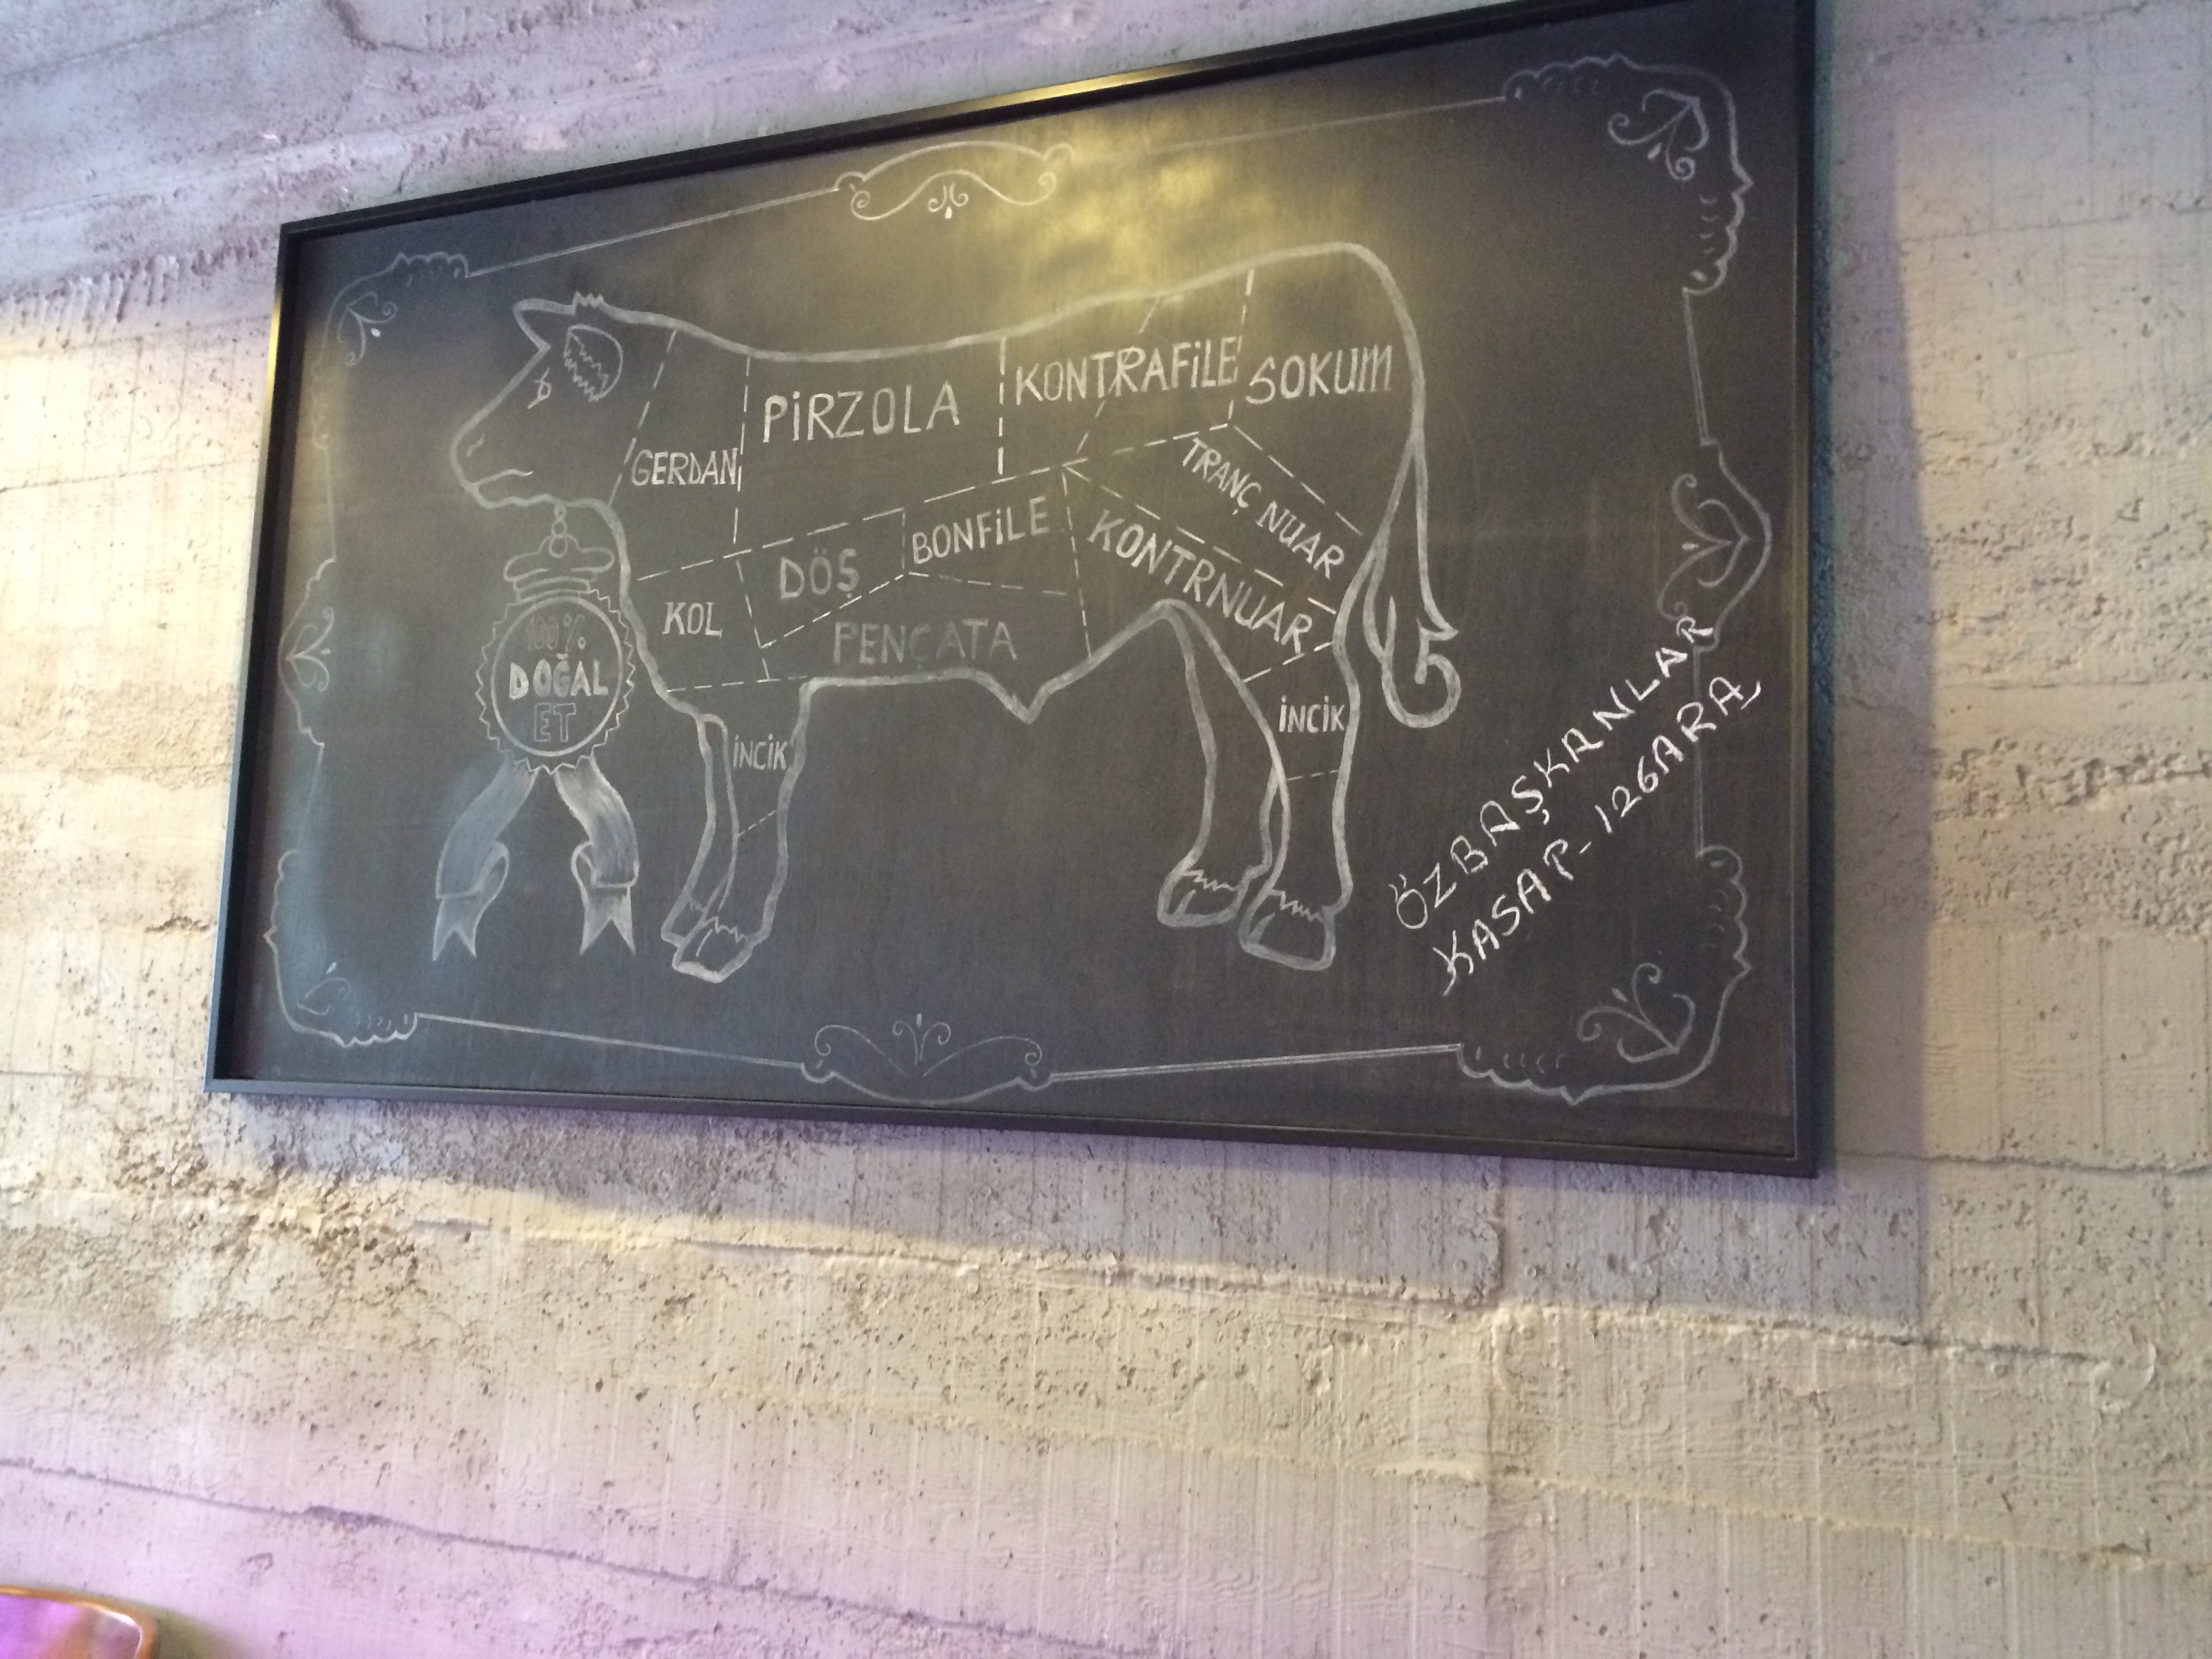 PİRZOLA
KONTRAFİLE
SOKUM
GERDAN
TRANÇ NUAR
DÖŞ
BONFİLE
KONTRNUAR
KOL
PENÇATA
100%
DOĞAL
ET
İNCİK
İNCİK
ÖZBAŞKANLAR
KASAP-126ARA